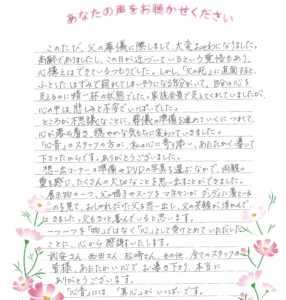 あなたの声をお聴かせください
このたび、父の葬儀に際しまして、大変お世話になりました。
高齢でありましたし、この日が近づいているという覚悟もあり、
心構えはできているつもりでした。しかし、「父の死」に直面すると、
ふとしたはずみで崩れてしまいそうになる自分がいて、自分の心を
支えるのに精一杯の状態でした。家族全員で支えてくれていましたが、
心の中は、悲しみと不安でいっぱいでした。
ところが不思議なことに、葬儀の準備を進めていくにつれて、
心が落ち着き、穏やかな気もちに変わっていきました。
「心音」のスタッフの方が、私の心に寄り添い、あたたかく導いて
下さったからです。ありがとうございました。
想い出コーナーの準備やDVDの写真を選ぶなかで、両親の
愛を感じ、たくさんの大切なことを思い出すことができました。
展示物の一つ、父の帽子とスーツをマネキンが ダンディに着ている
のを見て、おしゃれだった父を思い出し、父の笑顔が浮かんで
きました。父もきっと喜んでいると思います。
一つ一つを「物」ではなく「心」として受けとめていただいた
ことに、心から感謝いたします。
西田さん、松崎さん、その他、全てのスタッフの
皆様、あたたかい心で お導き下さり、本当に
ありがとうございました。
「心音」には、「真心」がいっぱいです。